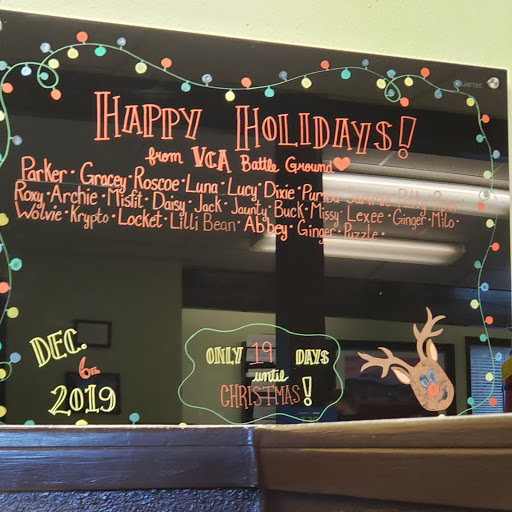 HAPPY HOLIDAYS!
from VCA Battle Ground
Parker · Gracey · Roscoe · Luna · Lucy · Dixie ·
Roxy · Archie · Misfit · Daisy · Jack · Jaunty · Buck · Missy · Lexee · Ginger · Milo ·
Wolvie · Krypto · Locket · Lilli Bean · Abbey · Ginger · Puzzle ·
DEC.
6TH
2019
ONLY 19 DAYS
until
CHRISTMAS!